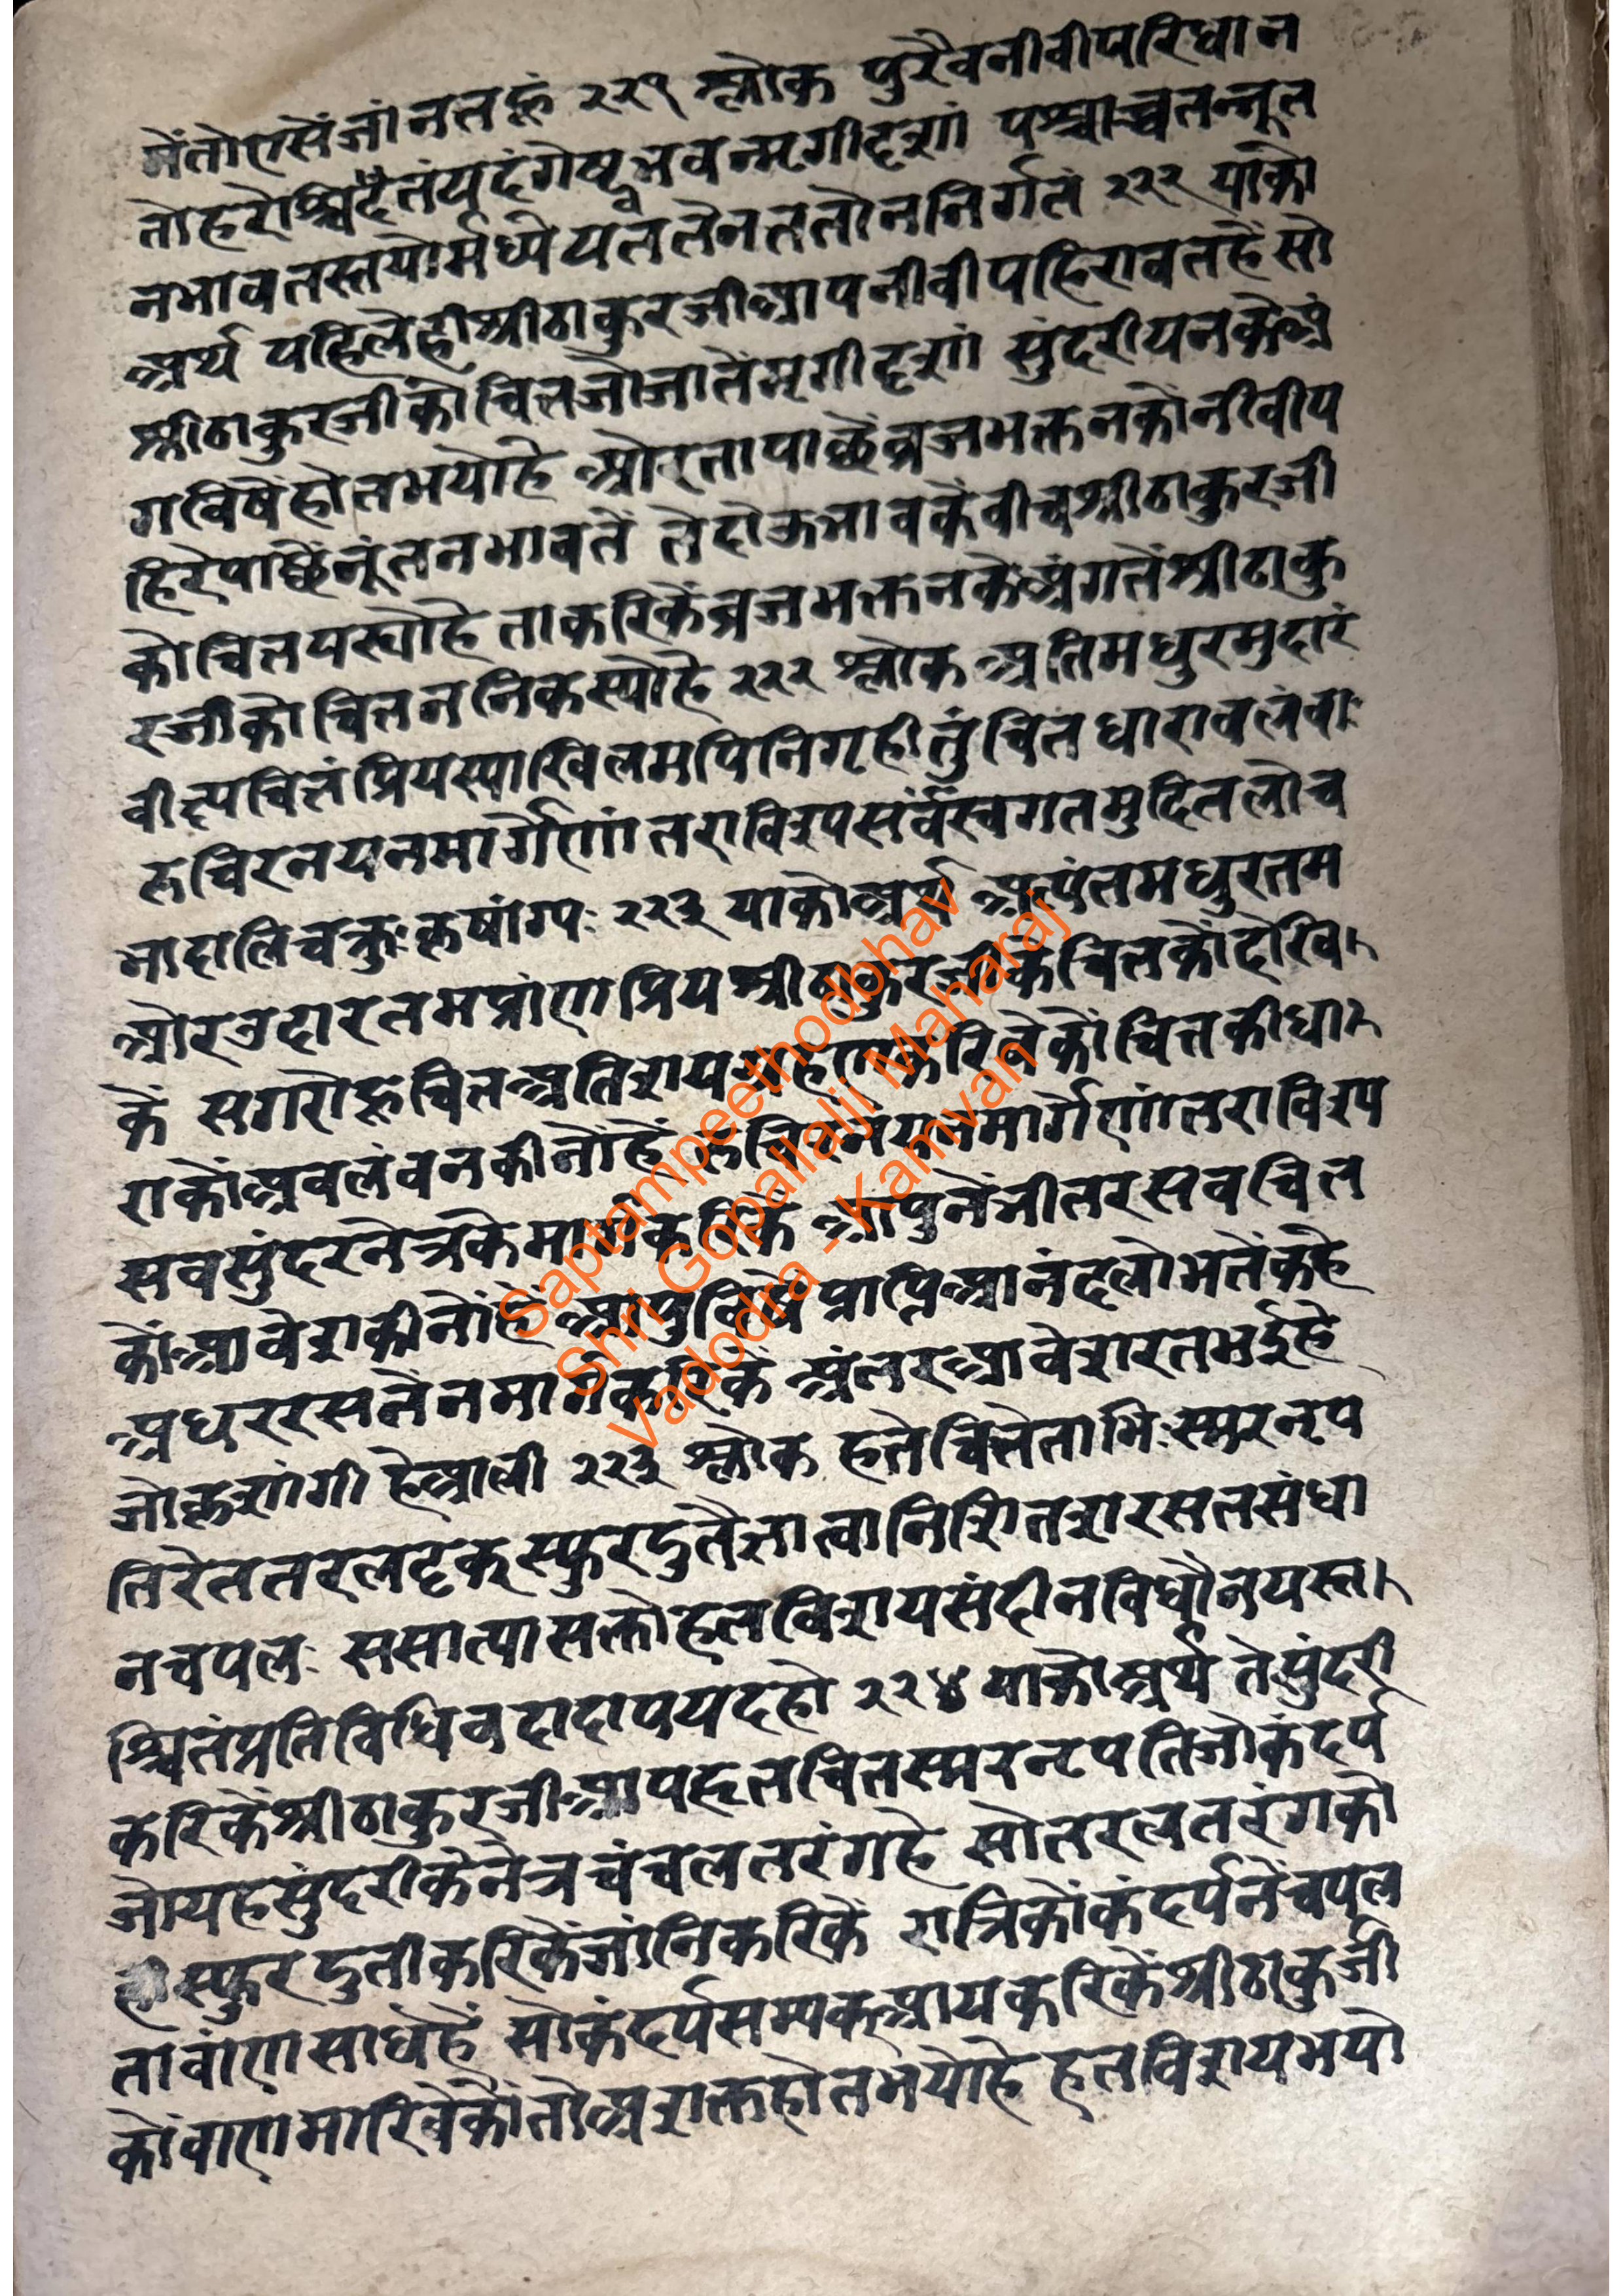 मेंतोएसेंजांनतहूं २२१ श्लोक पुरैवनीवीपरिधान
तोहरोश्चिद्दैतंयदंगेषूभवन्मृगीदृशां पश्चाच्चतन्नूत
नभावतस्तयोर्मध्येयततेनततोननिर्गतं २२२ याको
अर्थ पहिलेहीश्रीठाकुरजीआपनीवीपहिरावतहैंसो
श्रीठाकुरजीकोचितजोजातेंमृगीदृशां सुंदरीयनकेअं
गविषेंहोतभयोहै औरतापाछेंब्रजभक्तनकोंनीवीप
हिरेंपाछेंनूंतनभावतें तेदोऊभावकेंवीचश्रीठाकुरजी
कोचितपस्योहै ताकरिकेंब्रजभक्तनकेअंगतेंश्रीठाकु
रजीकोचितननिकस्योहै २२२ श्लोक अतिमधुरमुदारं
वीत्यचितंप्रियस्याखिलमपिनिगृहीतुंचितधारावलंवाः
रूचिरनयनमार्गेणांतराविश्यसर्वस्वगतमुदितलोच
भादालिचक्रुःरूषांग्यः २२३ याकोअर्थ अत्यंतमधुरतम
औरउदारतमप्रांणप्रियश्रीठाकुरजीकेचितकोंदेखि
कें सगरोहूचितअतिशयग्रहणकरिवेकोंचितकीधा
राकोंअवलंवनकीनोंहैं रूचिरनयनमार्गेणांतराविश्य
सवसुंदरनेत्रकेमार्गकरिकें आपुनेंभीतरसवचित
कोंआवेशकीनोंहें आपुविषेंप्राप्तिआनंदलोभतेंकहे
अधररसतेंनमार्गकरिकें अंतरआवेशरतभईहे
जोकृशांगी हेआली २२३ श्लोक हृतेचितेताभिःस्मरनृप
तिरेततरलदृक्स्फुरदुतैज्ञात्वानिशितशरसतसंधा
नचपलः ससात्यासक्तोहृतविशयसंदीनविधौनयस्त
श्चितंप्रतिविधिवदादापयदहो २२४ याकोअर्थ तेसुंदरी
करिकेंश्रीठाकुरजीआपहृतचितस्मरनृपतिजोकंदर्प
जोयहसुंदरीकेनेत्रचंचलतरंगहे सोतरलतरंगको
स्फुरदुतीकरिकेंजांनिकरिकें रात्रिकोंकंदर्पनेंचपल
तावांणसाधेंहैं सोकंदर्पसम्यक्आयकरिकेंश्रीठाकुर्जी
कोंवांणमारिवेकोंतोअशक्तहोतभयोहै हृतविशयभयो
Saptampeethodbhav
Shri Gopallalji Maharaj
Vadodra - Kamvan